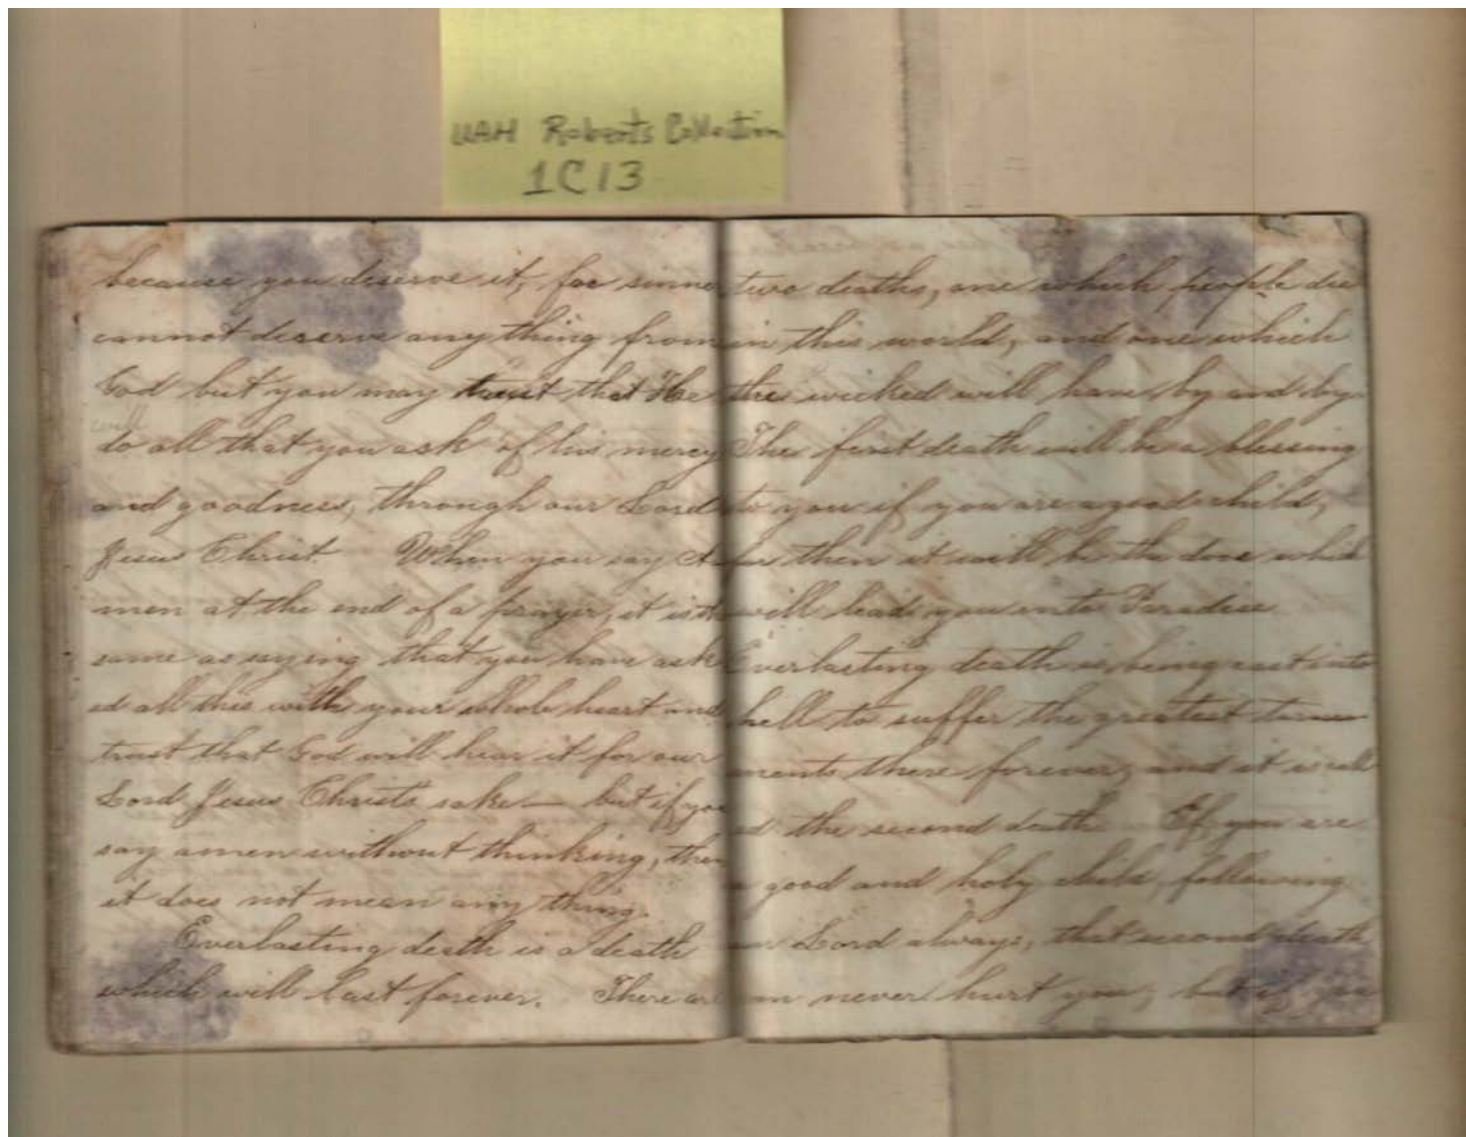 UAH Roberts Collection
1C13
because you deserve it, for sinne
cannot deserve any thing from
God but you may trust that He
will
do all that you ask of his mercy
and goodness, through our Lord
Jesus Christ. When you say A
men at the end of a prayer, it is the
same as saying that you have ask
ed all this with your whole heart and
trust that God will hear it for our
Lord Jesus Christ's sake — but if you
say amen without thinking, then
it does not mean any thing.
Everlasting death is a death
which will last forever. There are
two deaths, one which people die
in this world, and one which
the wicked will have by and by.
The first death will be a blessing
to you if you are a good child,
for then it will be the door which
will lead you into Paradise
Everlasting death is being cast into
hell to suffer the greatest tor
ments there forever, and it is call
ed the second death. If you are
a good and holy child, following
our Lord always, that second death
can never hurt you, but if you